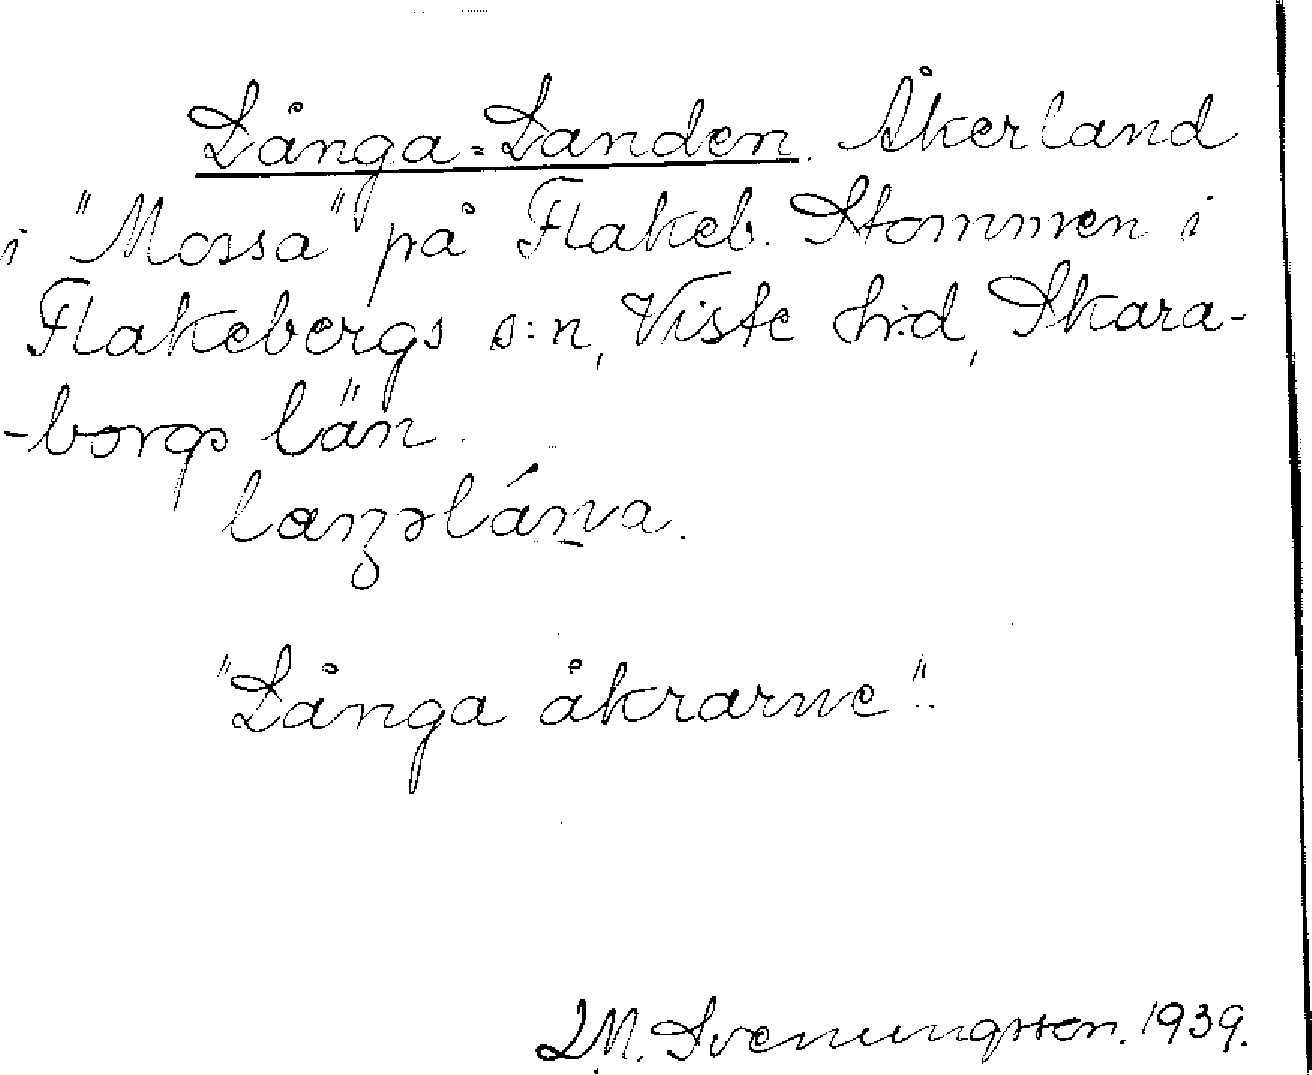 Långa-Landen. Åkerland
i "Mossa" på Flakeb. Stommen i
Flakebergs s:n, Viste h:d, Skara-
-borgs län.
"Långa åkrarne".
S.M. Svenungsson. 1939.